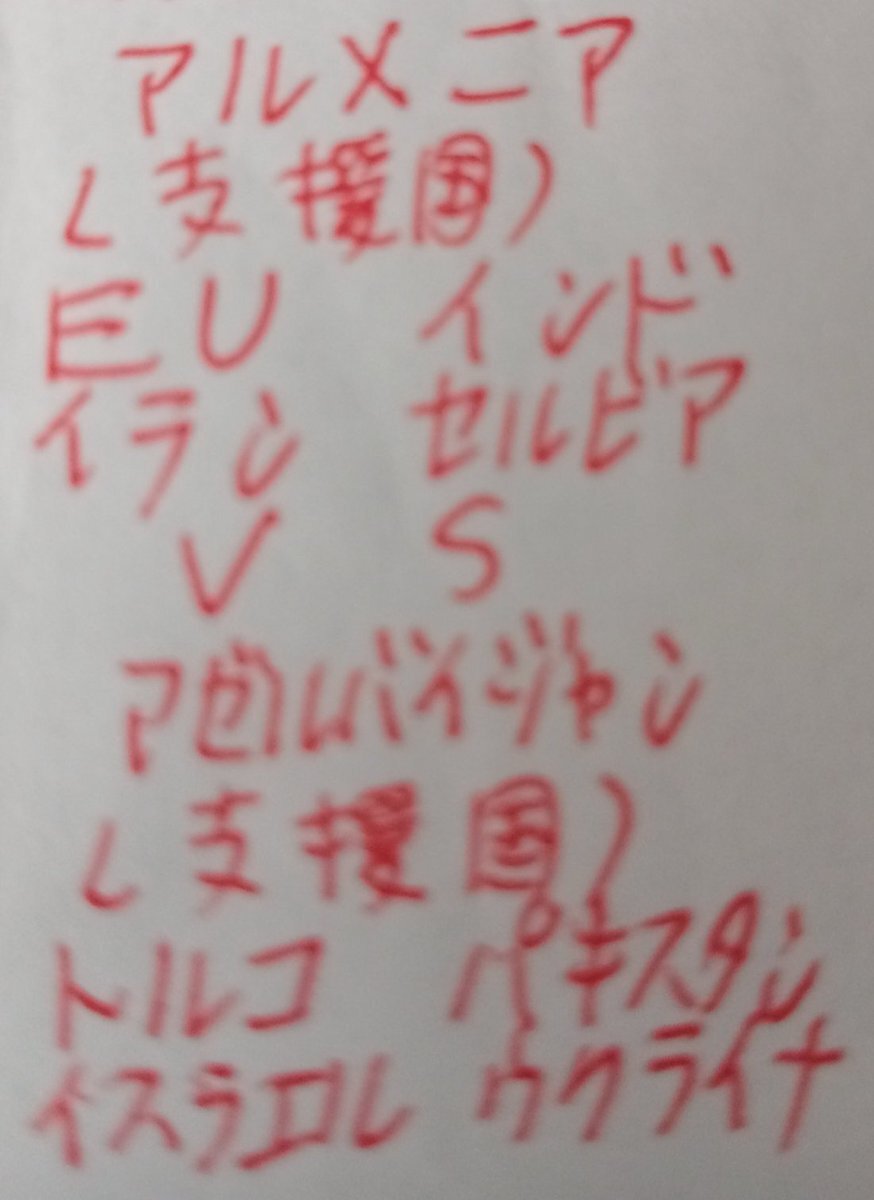 アルメニア
(支援国)
EU インド
イラン セルビア
VS
アゼルバイジャン
(支援国)
トルコ パキスタン
イスラエル ウクライナ